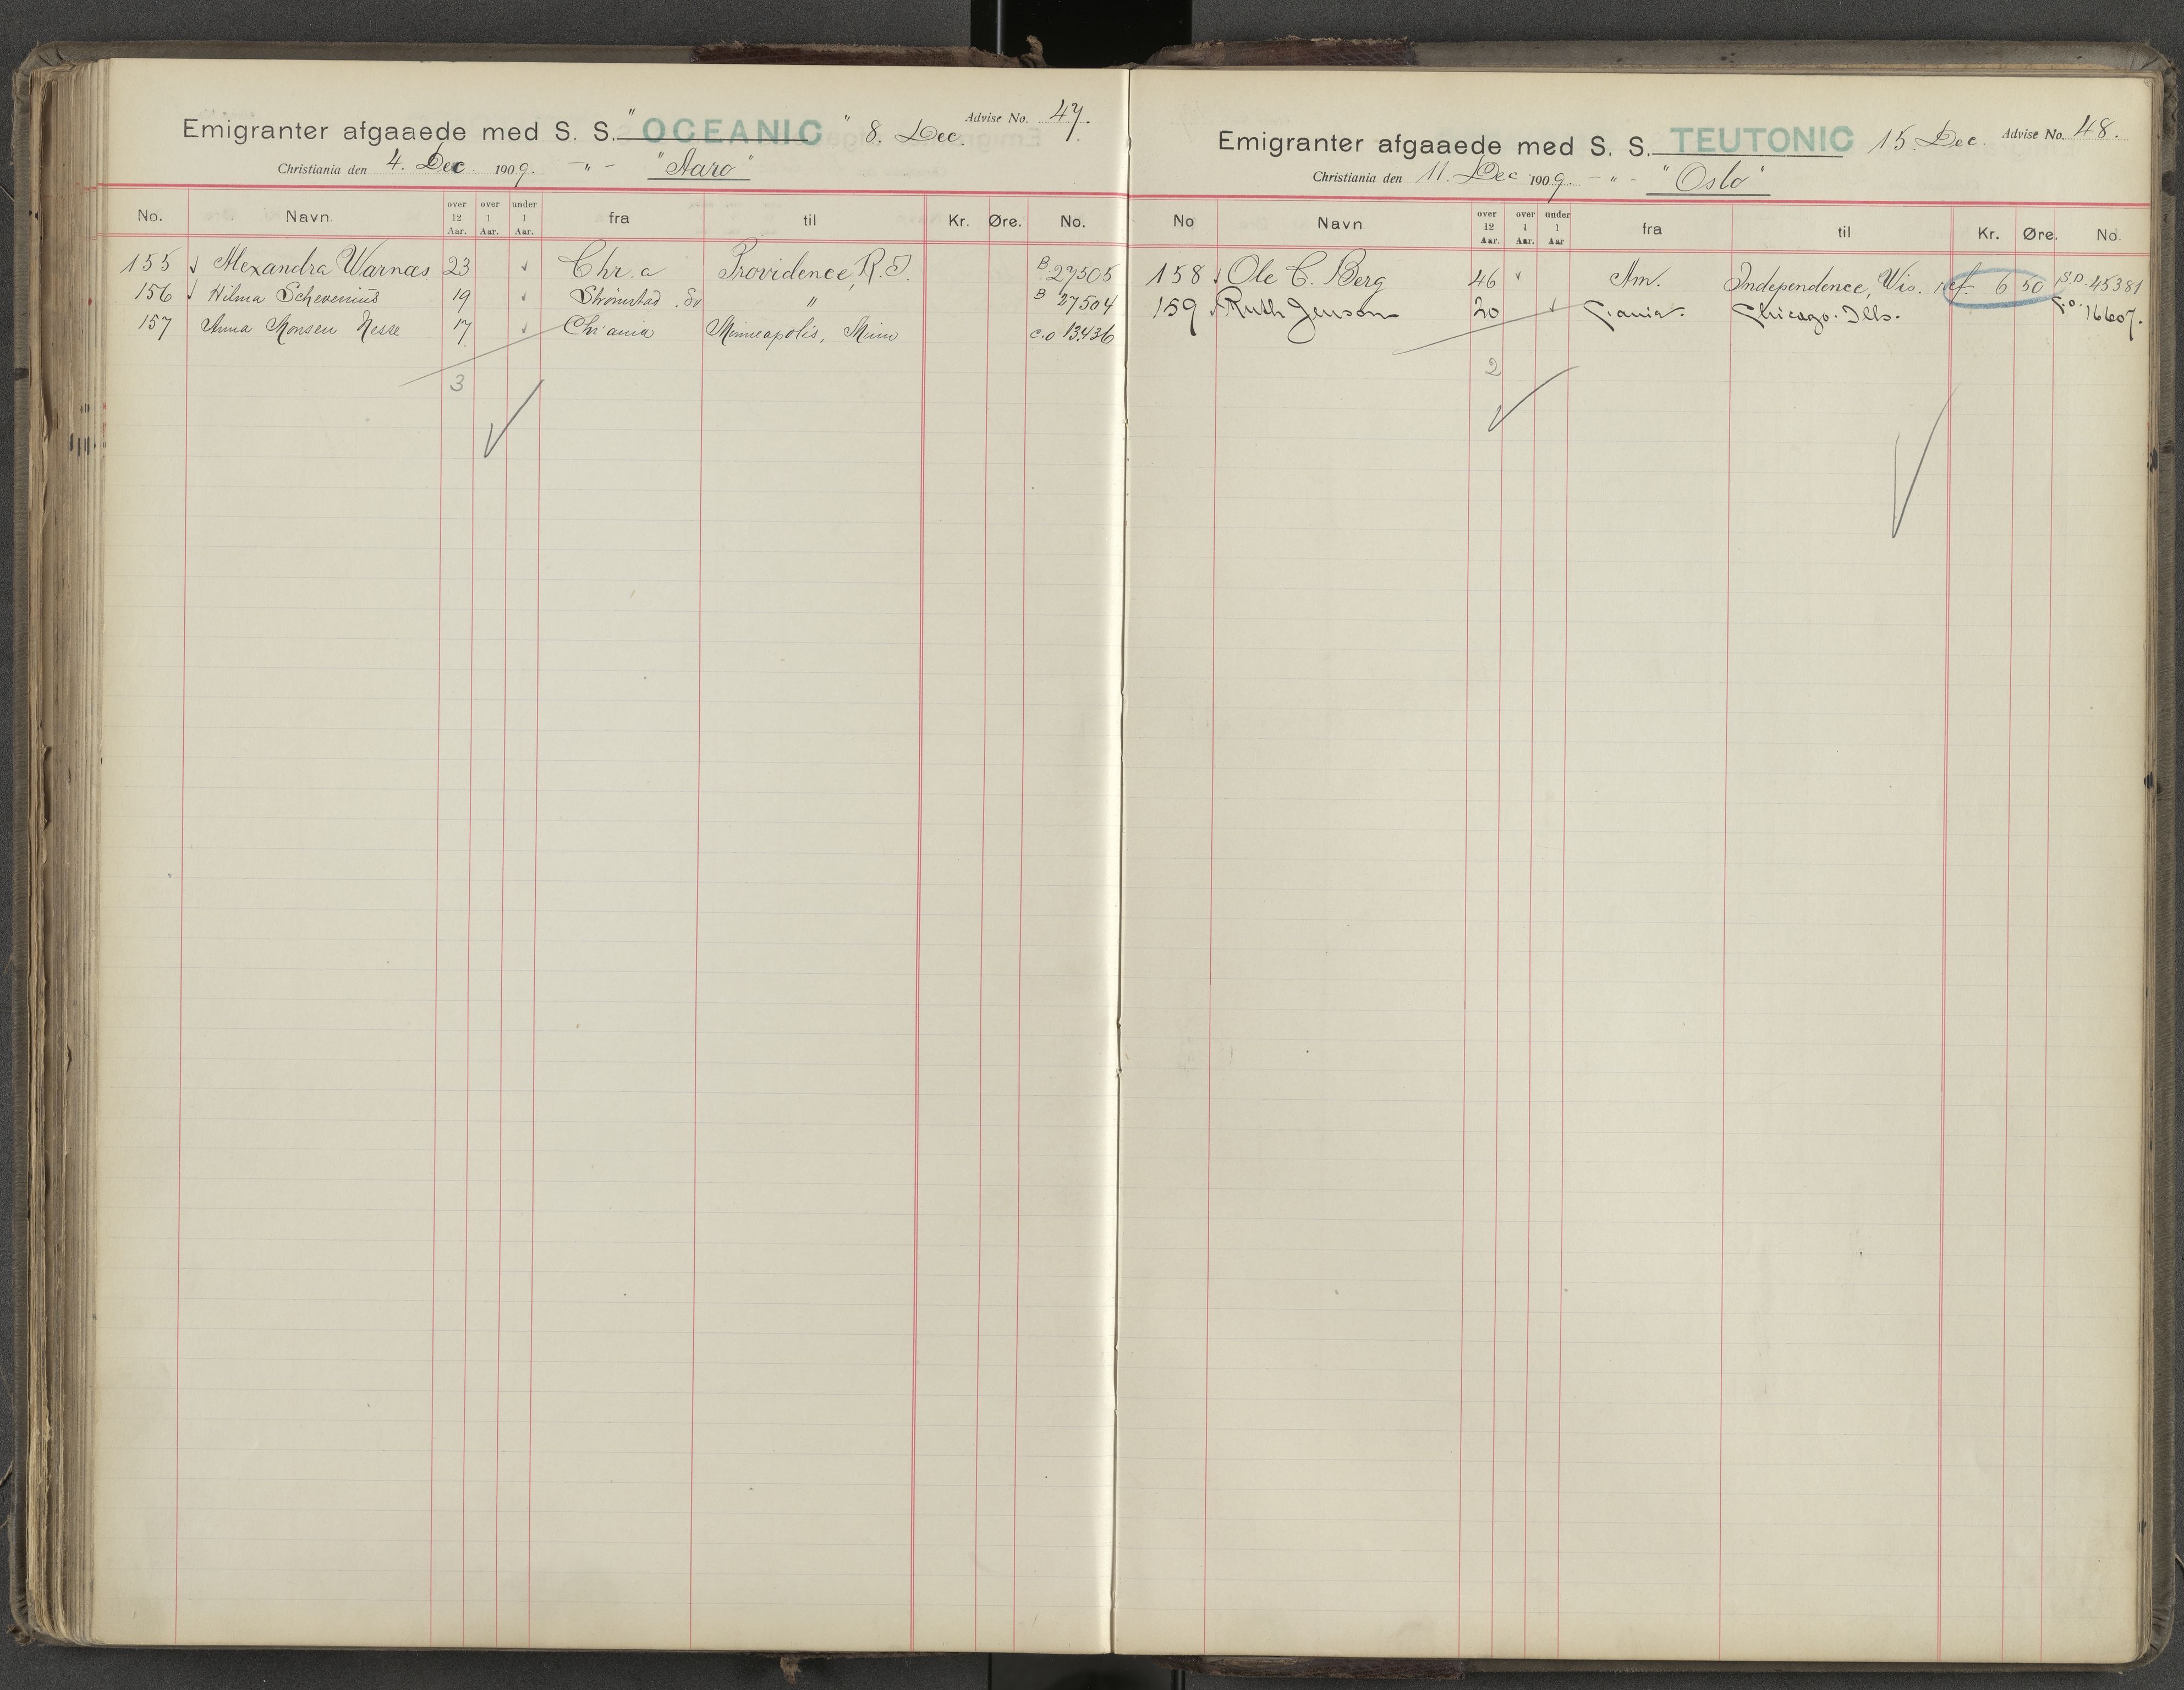 Emigranter afgaaede med S. S. "OCEANIC" 8. Dec. Advise No. 47.
Christiania den 4. Dec. 1909. -"- "Aaro"
No. Navn. over 12 Aar. over 1 Aar. under 1 Aar. fra til Kr. Øre. No.
155 Alexandra Warnæs 23 Chr.a Providence, R.I. B 27505
156 Hilma Schevenius 19 Strømstad. Sv " B 27504
157 Anna Monsen Nesse 17 Chr'ania Minneapolis, Minn c.o 13436
3
Emigranter afgaaede med S. S. TEUTONIC 15. Dec. Advise No. 48.
Christiania den 11. Dec 1909. -"- "Oslo"
No Navn over 12 Aar. over 1 Aar. under 1 Aar fra til Kr. Øre. No.
158 Ole C. Berg 46 Am. Independence, Wis. ref. 6 50 S.D. 45381
159 Ruth Jenson 20 C.ania. Chicago. Ills. C.O. 16607.
2